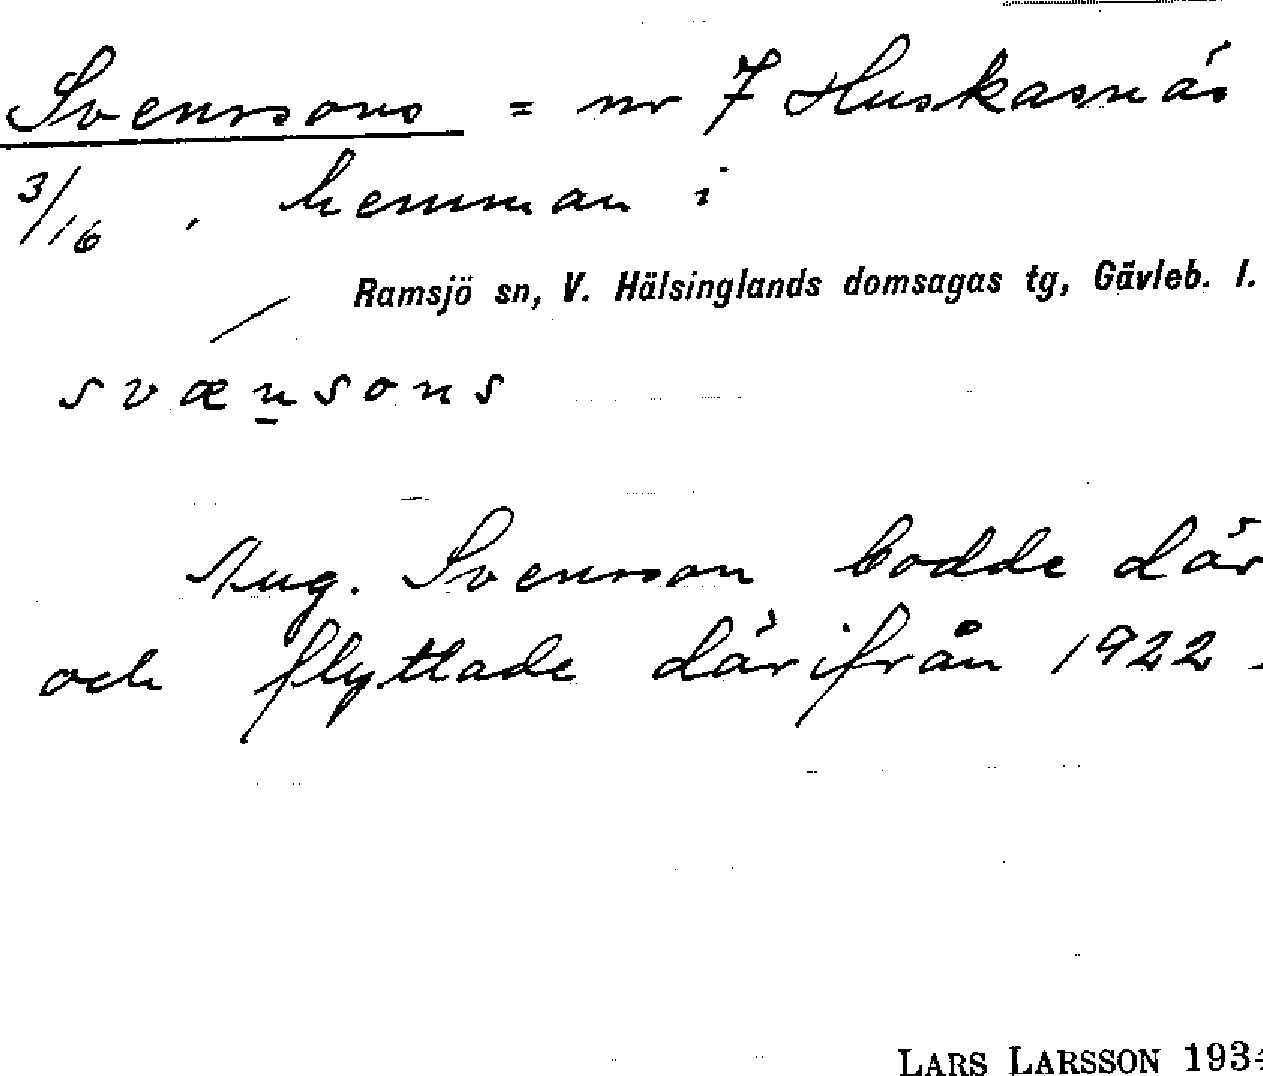 Svenssons = nr 7 Huskasnäs
3/16 , hemman i
Ramsjö sn, V. Hälsinglands domsagas tg, Gävleb. l.
svænsons
Aug. Svensson bodde där
och flyttade därifrån 1922.
LARS LARSSON 1934